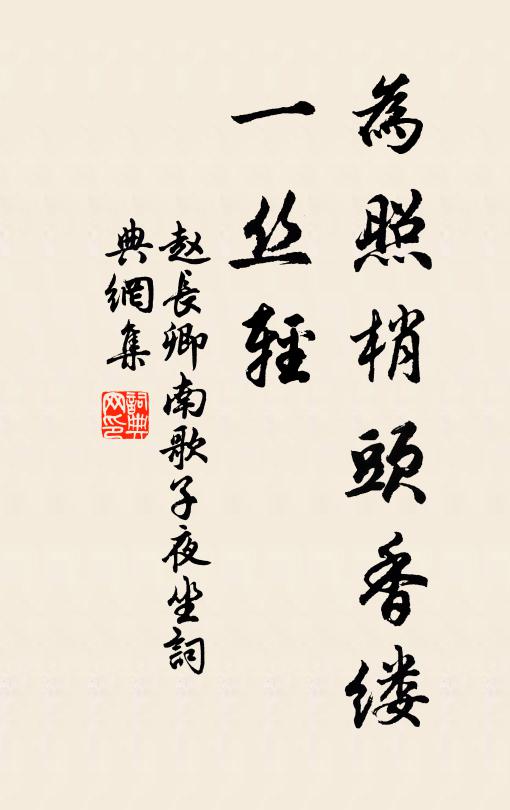 為照梢頭香缕
一丝輕
赵長卿南歌子夜坐詞
典網集
詞典
网印